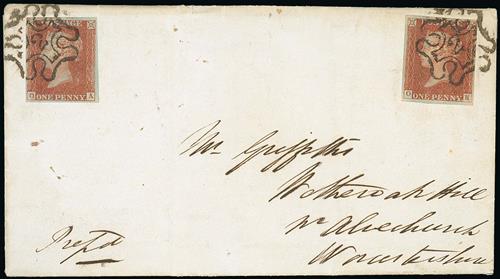 POSTAGE
ONE PENNY
A
ONE PENNY
Mr Griffiths
Wetheroak Hill
nr Alvechurch
Worcestershire
Prepd